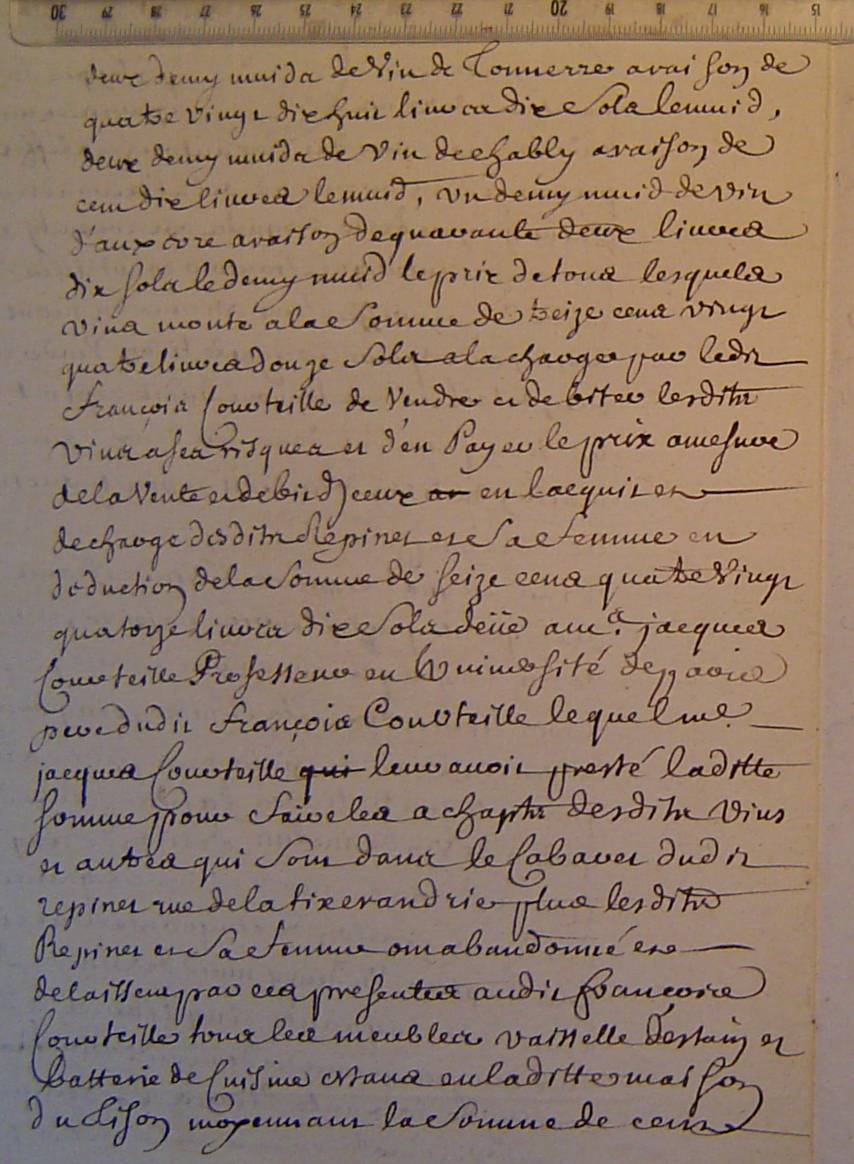 30 29 28 27 26 25 24 23 22 21 20 19 18 17 16 15
deux demy muids de Vin de Tonnerre a raison de
quatre vingt dix huit livres dix Sols le muid,
deux demy muids de Vin de Chably a raison de
cent dix livres le muid, Un demy muid de vin
d'auxerre a raison de quarante deux livres
dix sols le demy muid le prix de tous lesquels
vins monte a la Somme de treize cens vingt
quatre livres douze Sols a la charge par ledit
françois Courteille de Vendre et debiter lesdits
Vins a ses risques et d'en Payer le prix a mesure
de la Vente et debit d'jceux en l'acquit et
decharge desdits Repinet et Sa femme en
deduction de la Somme de seize cens quatre Vingt
quatorze livres dix Sols deüe a mᵉ. jacques
Courteille Professeur en Université de paris
pere dudit françois Courteille lequel me.
jacques Courteille qui leur avoit presté laditte
somme pour faire les achapts desdits Vins
et autres qui Sont dans le Cabaret dudit
repinet rue de la tixerandrie plus lesdits
Repinet et Sa femme ont abandonné et
delaissent par ces presentes audit françois
Courteille tous les meubles vaisselle d'estain et
batterie de Cuisine estans en laditte maison
du moyennant la Somme de cent